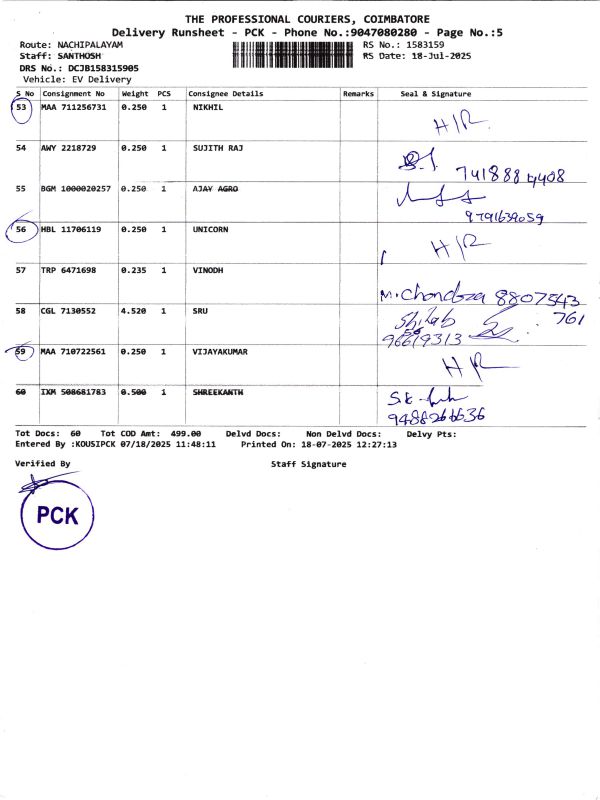 THE PROFESSIONAL COURIERS, COIMBATORE
Delivery Runsheet - PCK - Phone No.:9047080280 - Page No.:5
Route: NACHIPALAYAM RS No.: 1583159
Staff: SANTHOSH RS Date: 18-Jul-2025
DRS No.: DCJB158315905
Vehicle: EV Delivery
S No Consignment No Weight PCS Consignee Details Remarks Seal & Signature
53 MAA 711256731 0.250 1 NIKHIL H/R
54 AWY 2218729 0.250 1 SUJITH RAJ
55 BGM 1000020257 0.250 1 AJAY AGRO
9791639059
56 HBL 11706119 0.250 1 UNICORN H/R
57 TRP 6471698 0.235 1 VINODH
M. Chondsza 8807543
58 CGL 7130552 4.520 1 SRU 761
59 MAA 710722561 0.250 1 VIJAYAKUMAR H/R
60 IXM 508681783 0.500 1 SHREEKANTH
Tot Docs: 60 Tot COD Amt: 499.00 Delvd Docs: Non Delvd Docs: Delvy Pts:
Entered By :KOUSIPCK 07/18/2025 11:48:11 Printed On: 18-07-2025 12:27:13
Verified By Staff Signature
PCK